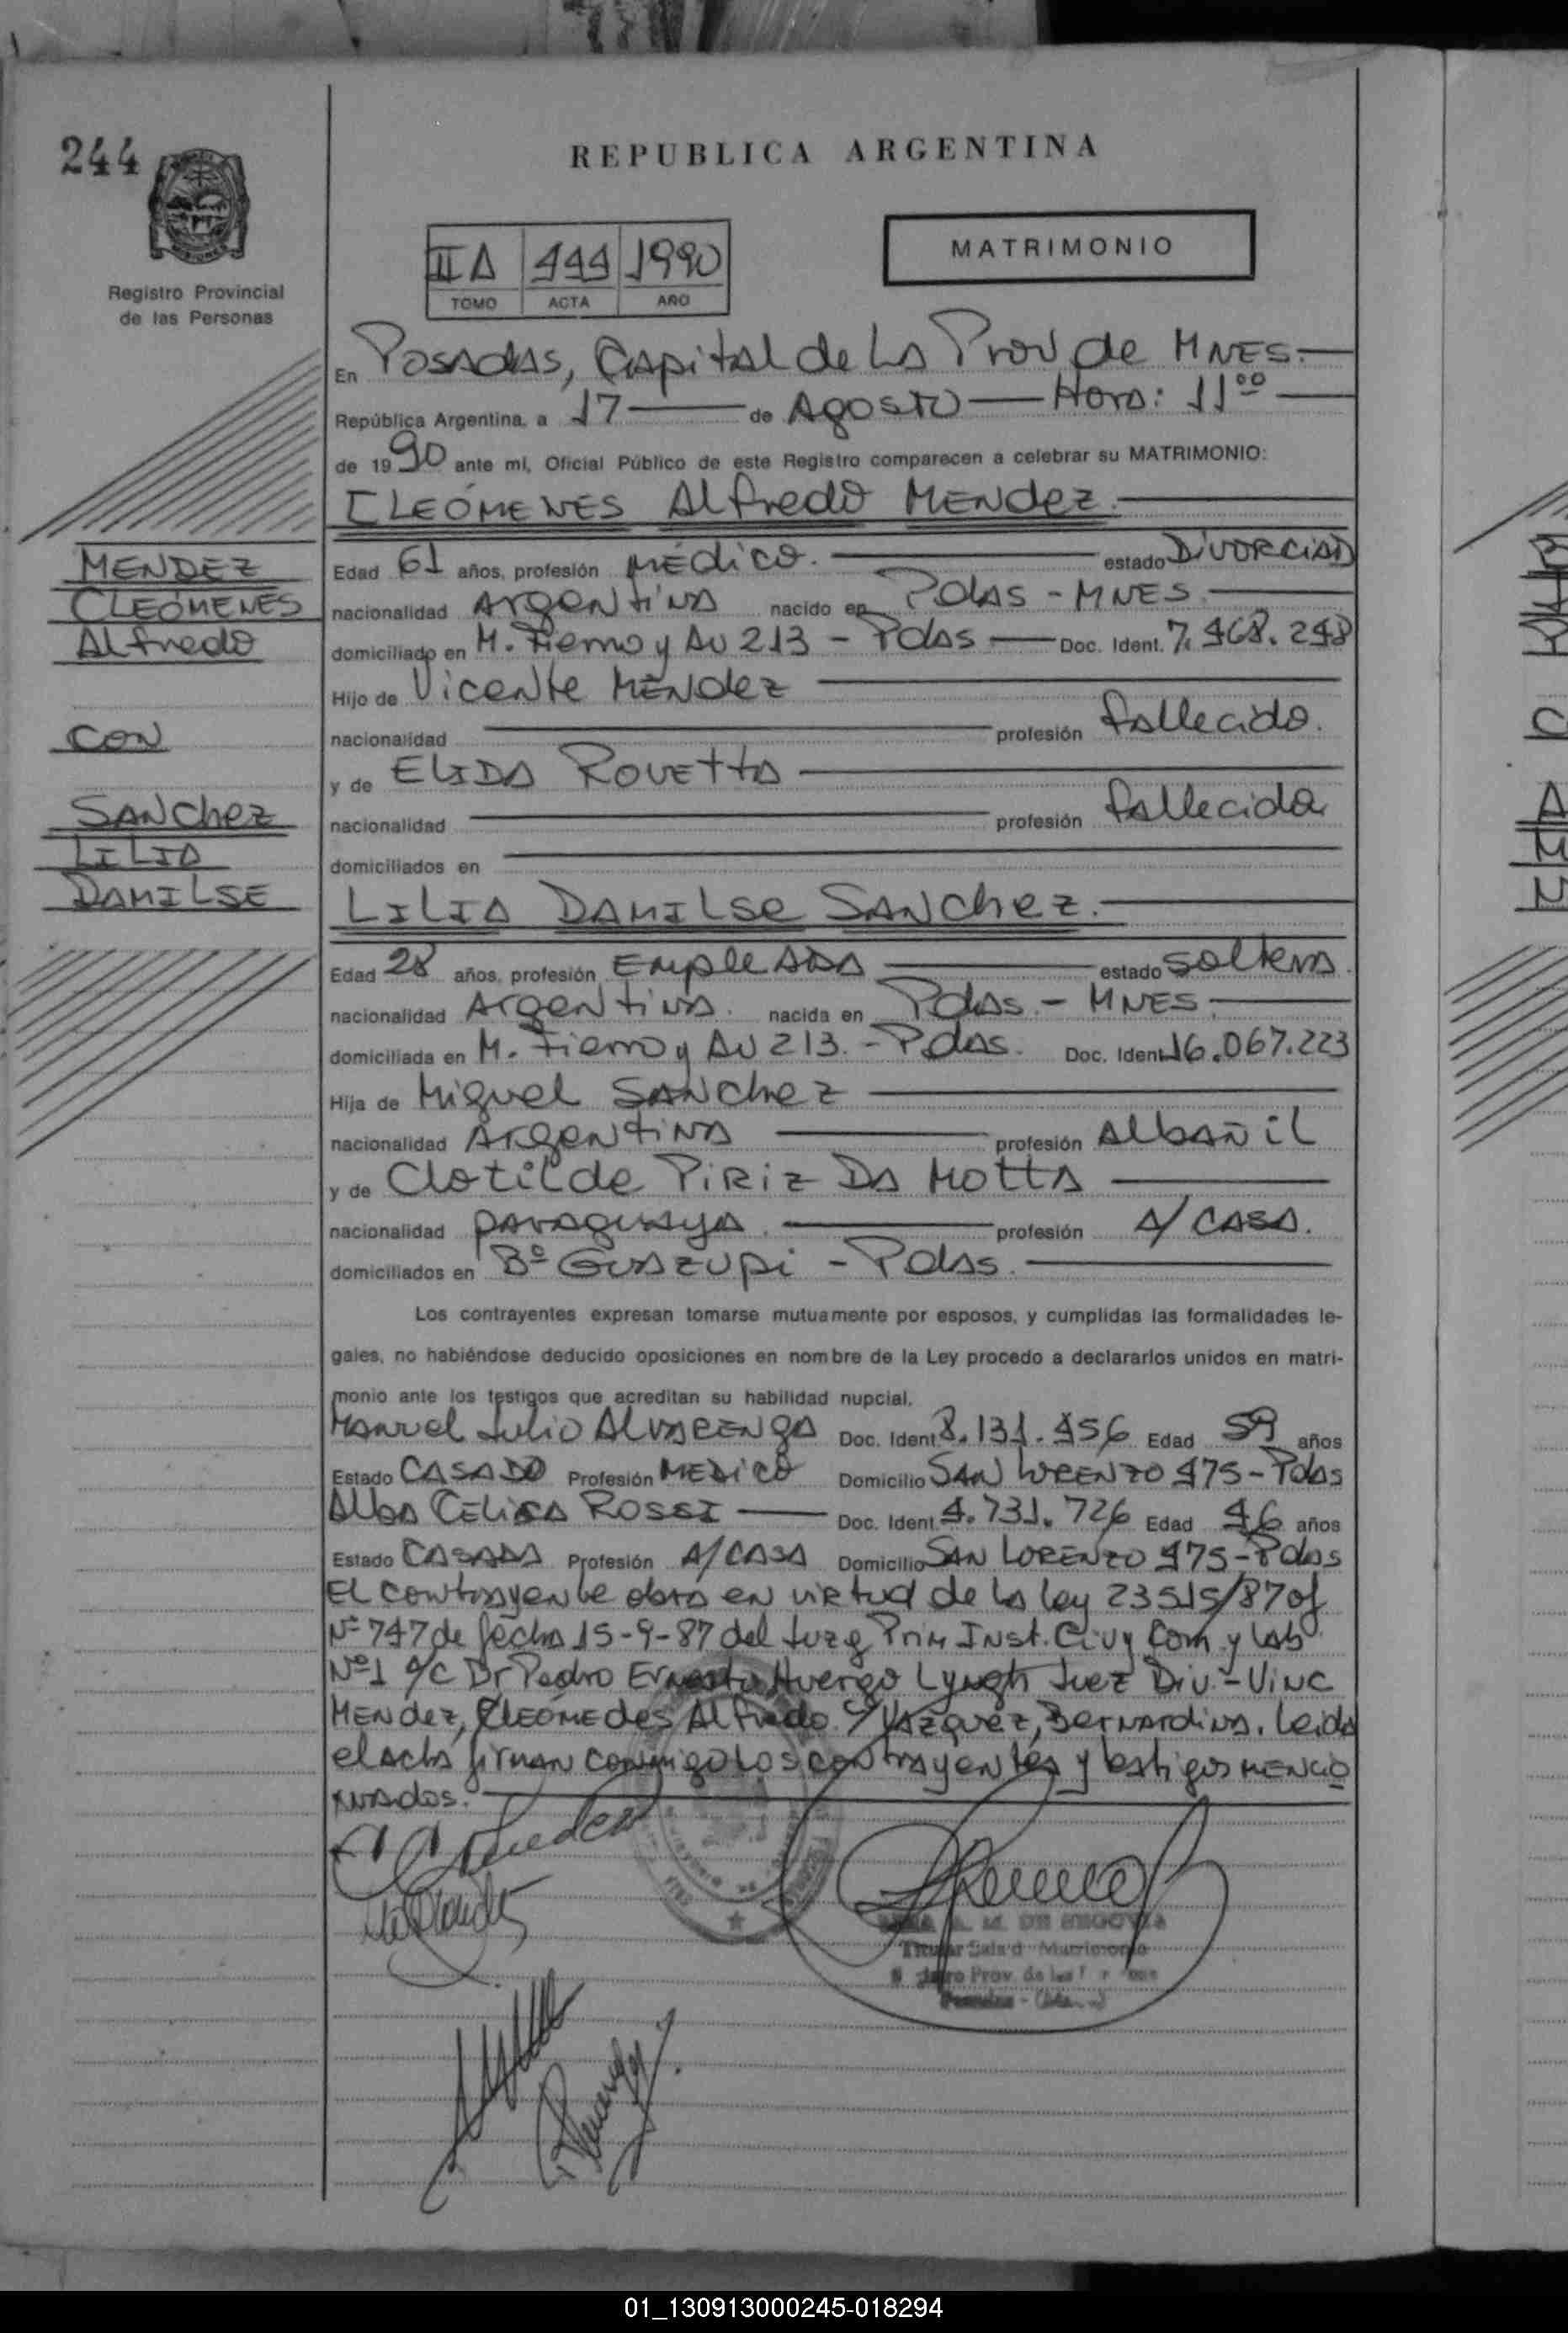 244
REPUBLICA ARGENTINA
Registro Provincial
de las Personas
II A 444 1990
TOMO ACTA AÑO
MATRIMONIO
En Posadas, Capital de la Prov de MNES.
República Argentina, a 17 de Agosto Hora: 11⁰⁰
de 1990 ante mí, Oficial Público de este Registro comparecen a celebrar su MATRIMONIO:
CLEÓMENES Alfredo MENdez.
MENDEZ
CLEÓMENES
Alfredo
CON
SANchez
LILIA
DAMILSE
Edad 61 años, profesión MÉdico. estado DiVORCIAD
nacionalidad ArgentiNA nacido en Pdas - MNES.
domiciliado en M. Fierro y AV 213 - Pdas Doc. Ident. 7.468.248
Hijo de Vicente MÉNdez
nacionalidad profesión fallecido.
y de ELIDA ROVEttA
nacionalidad profesión fallecida
domiciliados en
LILIA DAMILSe SANchez.
Edad 28 años, profesión EmpleADA estado soltera.
nacionalidad ArgentiNA. nacida en Pdas. - MNES.
domiciliada en M. Fierro y AV 213. - Pdas. Doc. Ident 16.067.223
Hija de Miguel SANchez
nacionalidad ArgentiNA profesión AlbAÑiL
y de Clotilde PiRiz DA MottA
nacionalidad pArAguAyA. profesión A/ CASA.
domiciliados en Bº GUAZUpi - Pdas.
Los contrayentes expresan tomarse mutuamente por esposos, y cumplidas las formalidades le-
gales, no habiéndose deducido oposiciones en nombre de la Ley procedo a declararlos unidos en matri-
monio ante los testigos que acreditan su habilidad nupcial.
MANuel Julio AlVARENgA Doc. Ident 8.131.456 Edad 59 años
Estado CASADO Profesión MEDiCO Domicilio SAN LORENZO 475 - Pdas
AlbA CELiCA ROSSI Doc. Ident. 4.731.726 Edad 46 años
Estado CASADA Profesión A/CASA Domicilio SAN LORENZO 475 - Pdas
El contrayente obra en virtud de la ley 23515/87 of
Nº 747 de fecha 15-9-87 del Juzg Prim INst. Civ y Com. y Lab
Nº1 a/c Dr Pedro Ernesto Huergo Lyngh Juez Div. - ViNC
MENdez, CLEÓMEdes Alfredo c/ VAZquez, BerNArdiNA. Leida
el acta firman conmigo los contrayentes y testigos MENCiO
Nados.
A. M. DE SEGOVIA
Titular Sala d Matrimonio
Prov. de las
Posadas
01_130913000245-018294